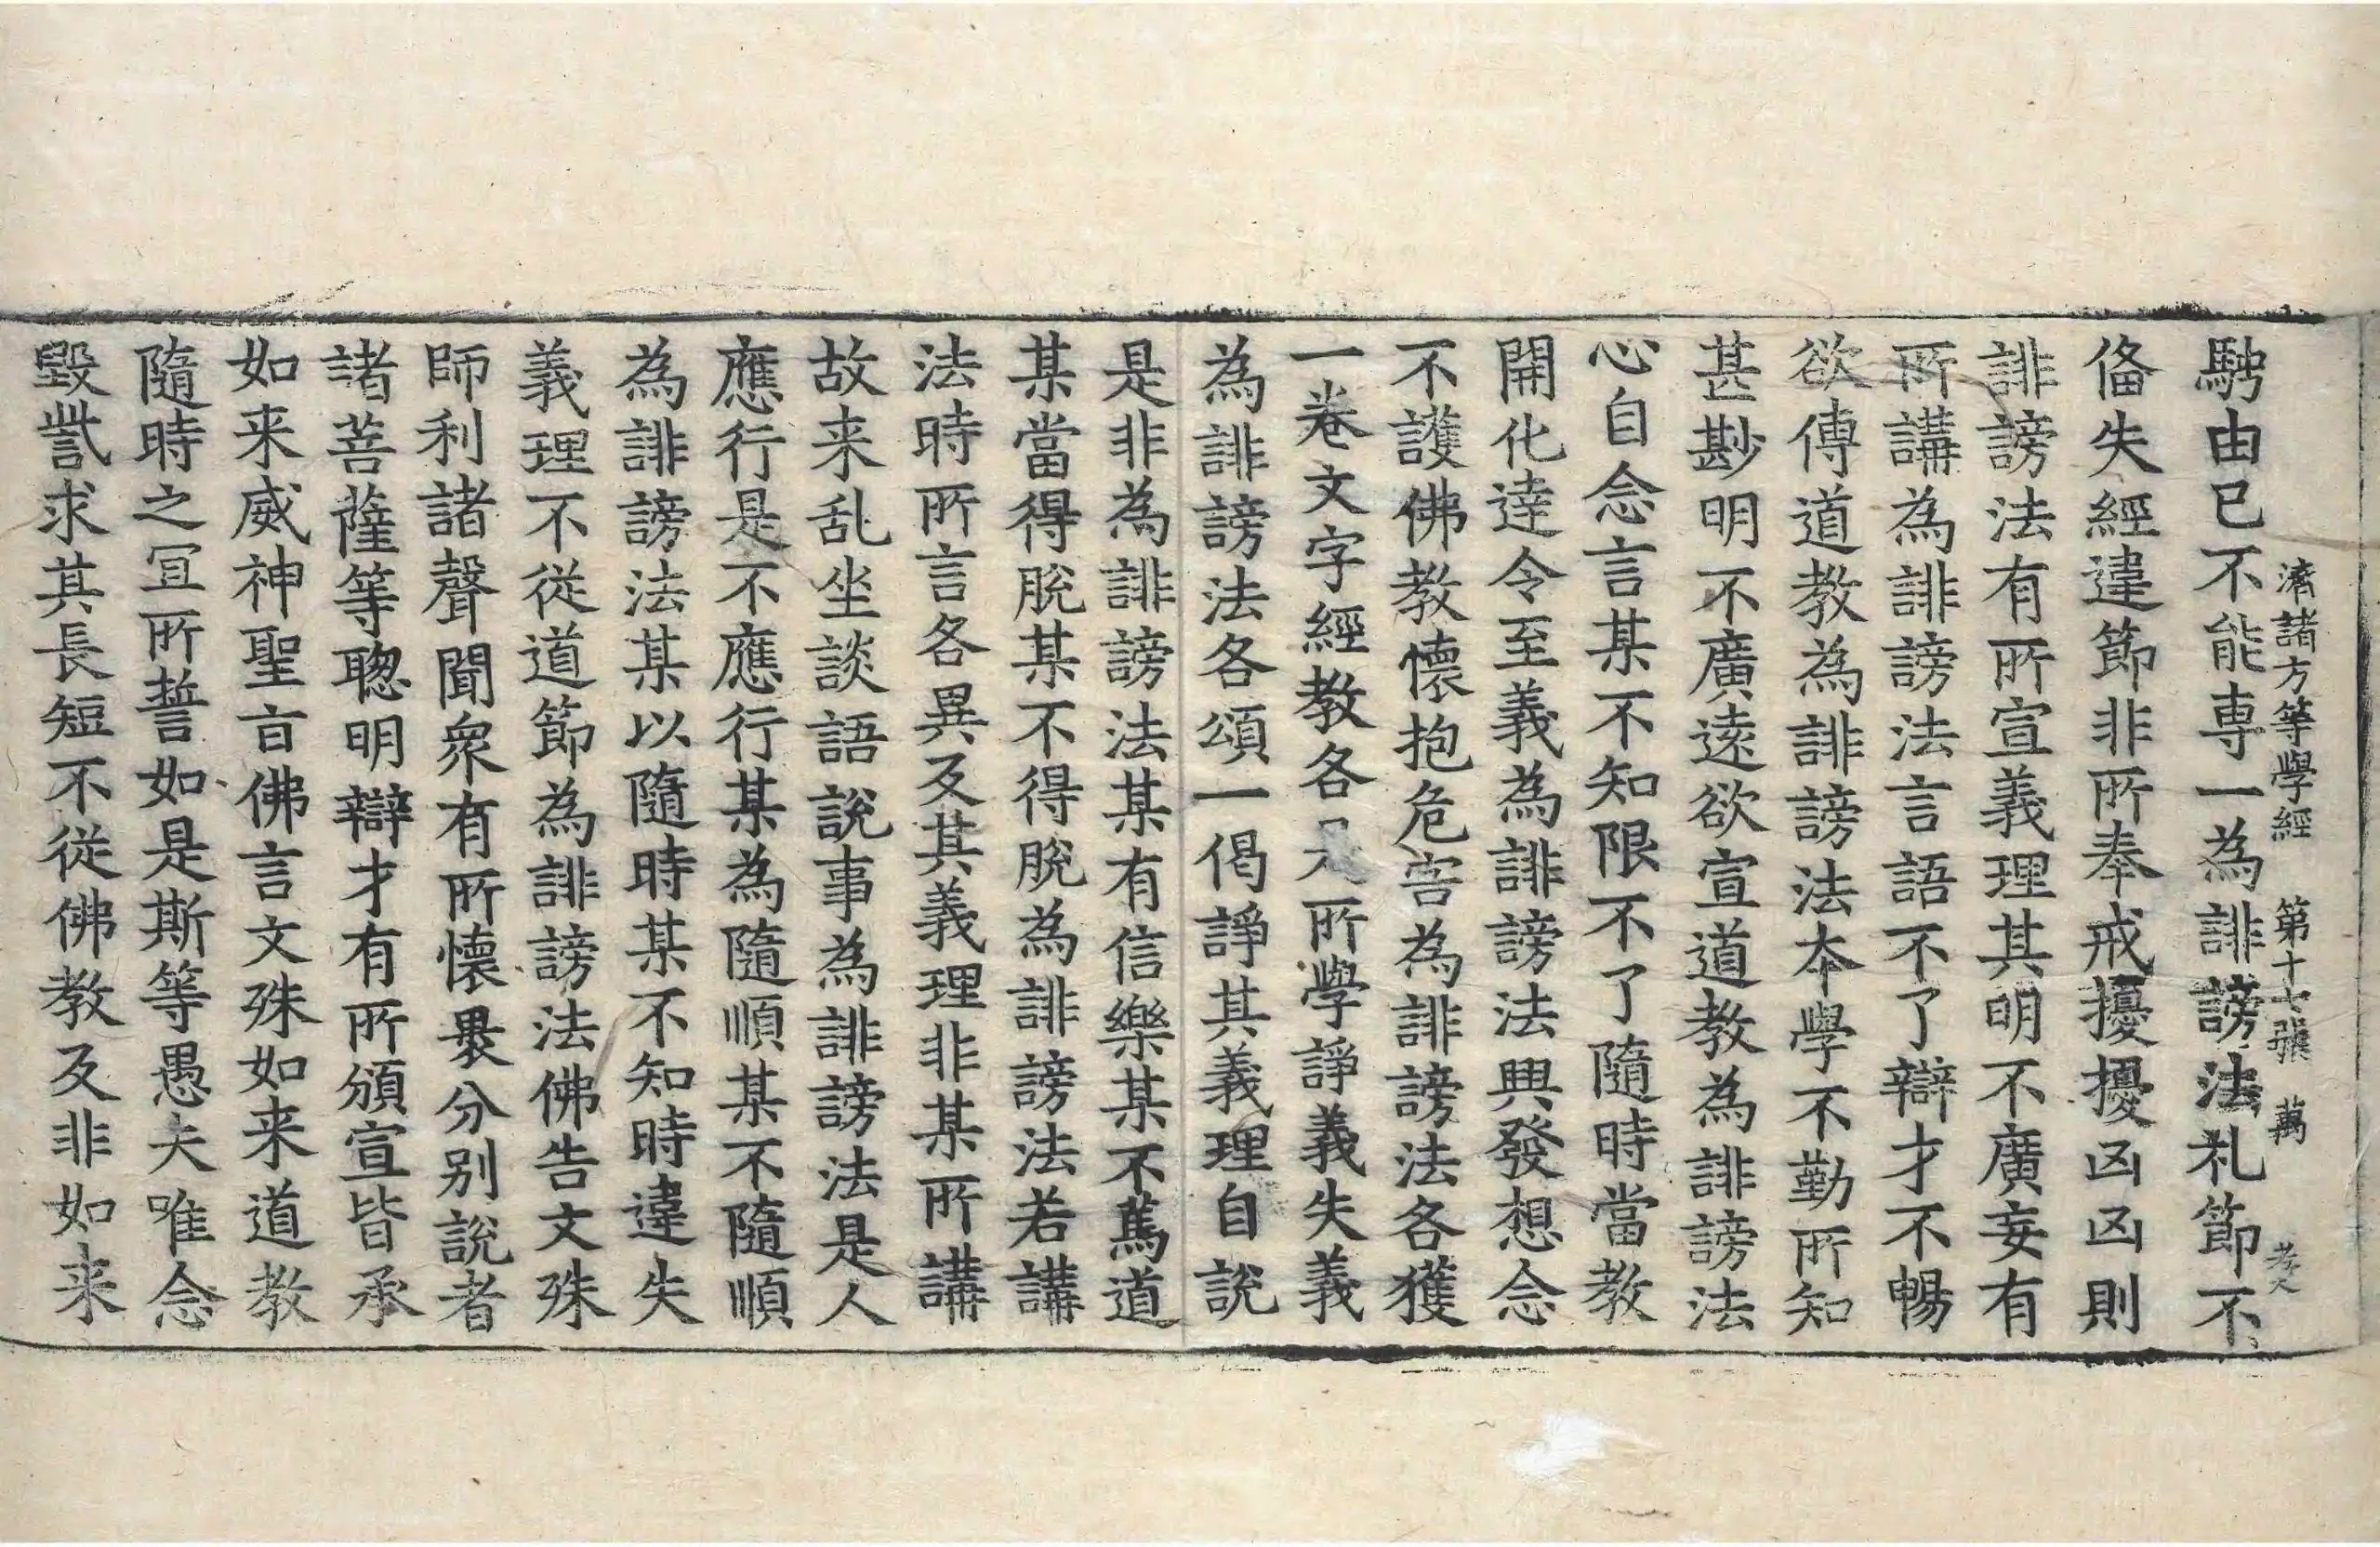 濟諸方等學經　第十七張　萬　孝久
騁由已不能専一為誹謗法礼節不
俻失經違節非所奉戒擾擾凶凶則
誹謗法有所宣義理其明不廣妄有
所講為誹謗法言語不了辯才不暢
欲傳道教為誹謗法本學不勤所知
甚尠明不廣遠欲宣道教為誹謗法
心自念言某不知限不了隨時當教
開化逹令至義為誹謗法興發想念
不護佛教懷抱危害為誹謗法各獲
一卷文字經教各所學諍義失義
為誹謗法各頌一偈諍其義理自說
是非為誹謗法某有信樂某不篤道
某當得脫某不得脫為誹謗法若講
法時所言各異及其義理非某所講
故来乱坐談語說事為誹謗法是人
應行是不應行某為隨順某不隨順
為誹謗法某以隨時某不知時違失
義理不從道節為誹謗法佛告文殊
師利諸聲聞衆有所懷褁分别說者
諸菩薩等聰明辯才有所頒宣皆承
如来威神聖旨佛言文殊如来道教
隨時之冝所誓如是斯等愚夫唯念
毀呰求其長短不從佛教及非如来